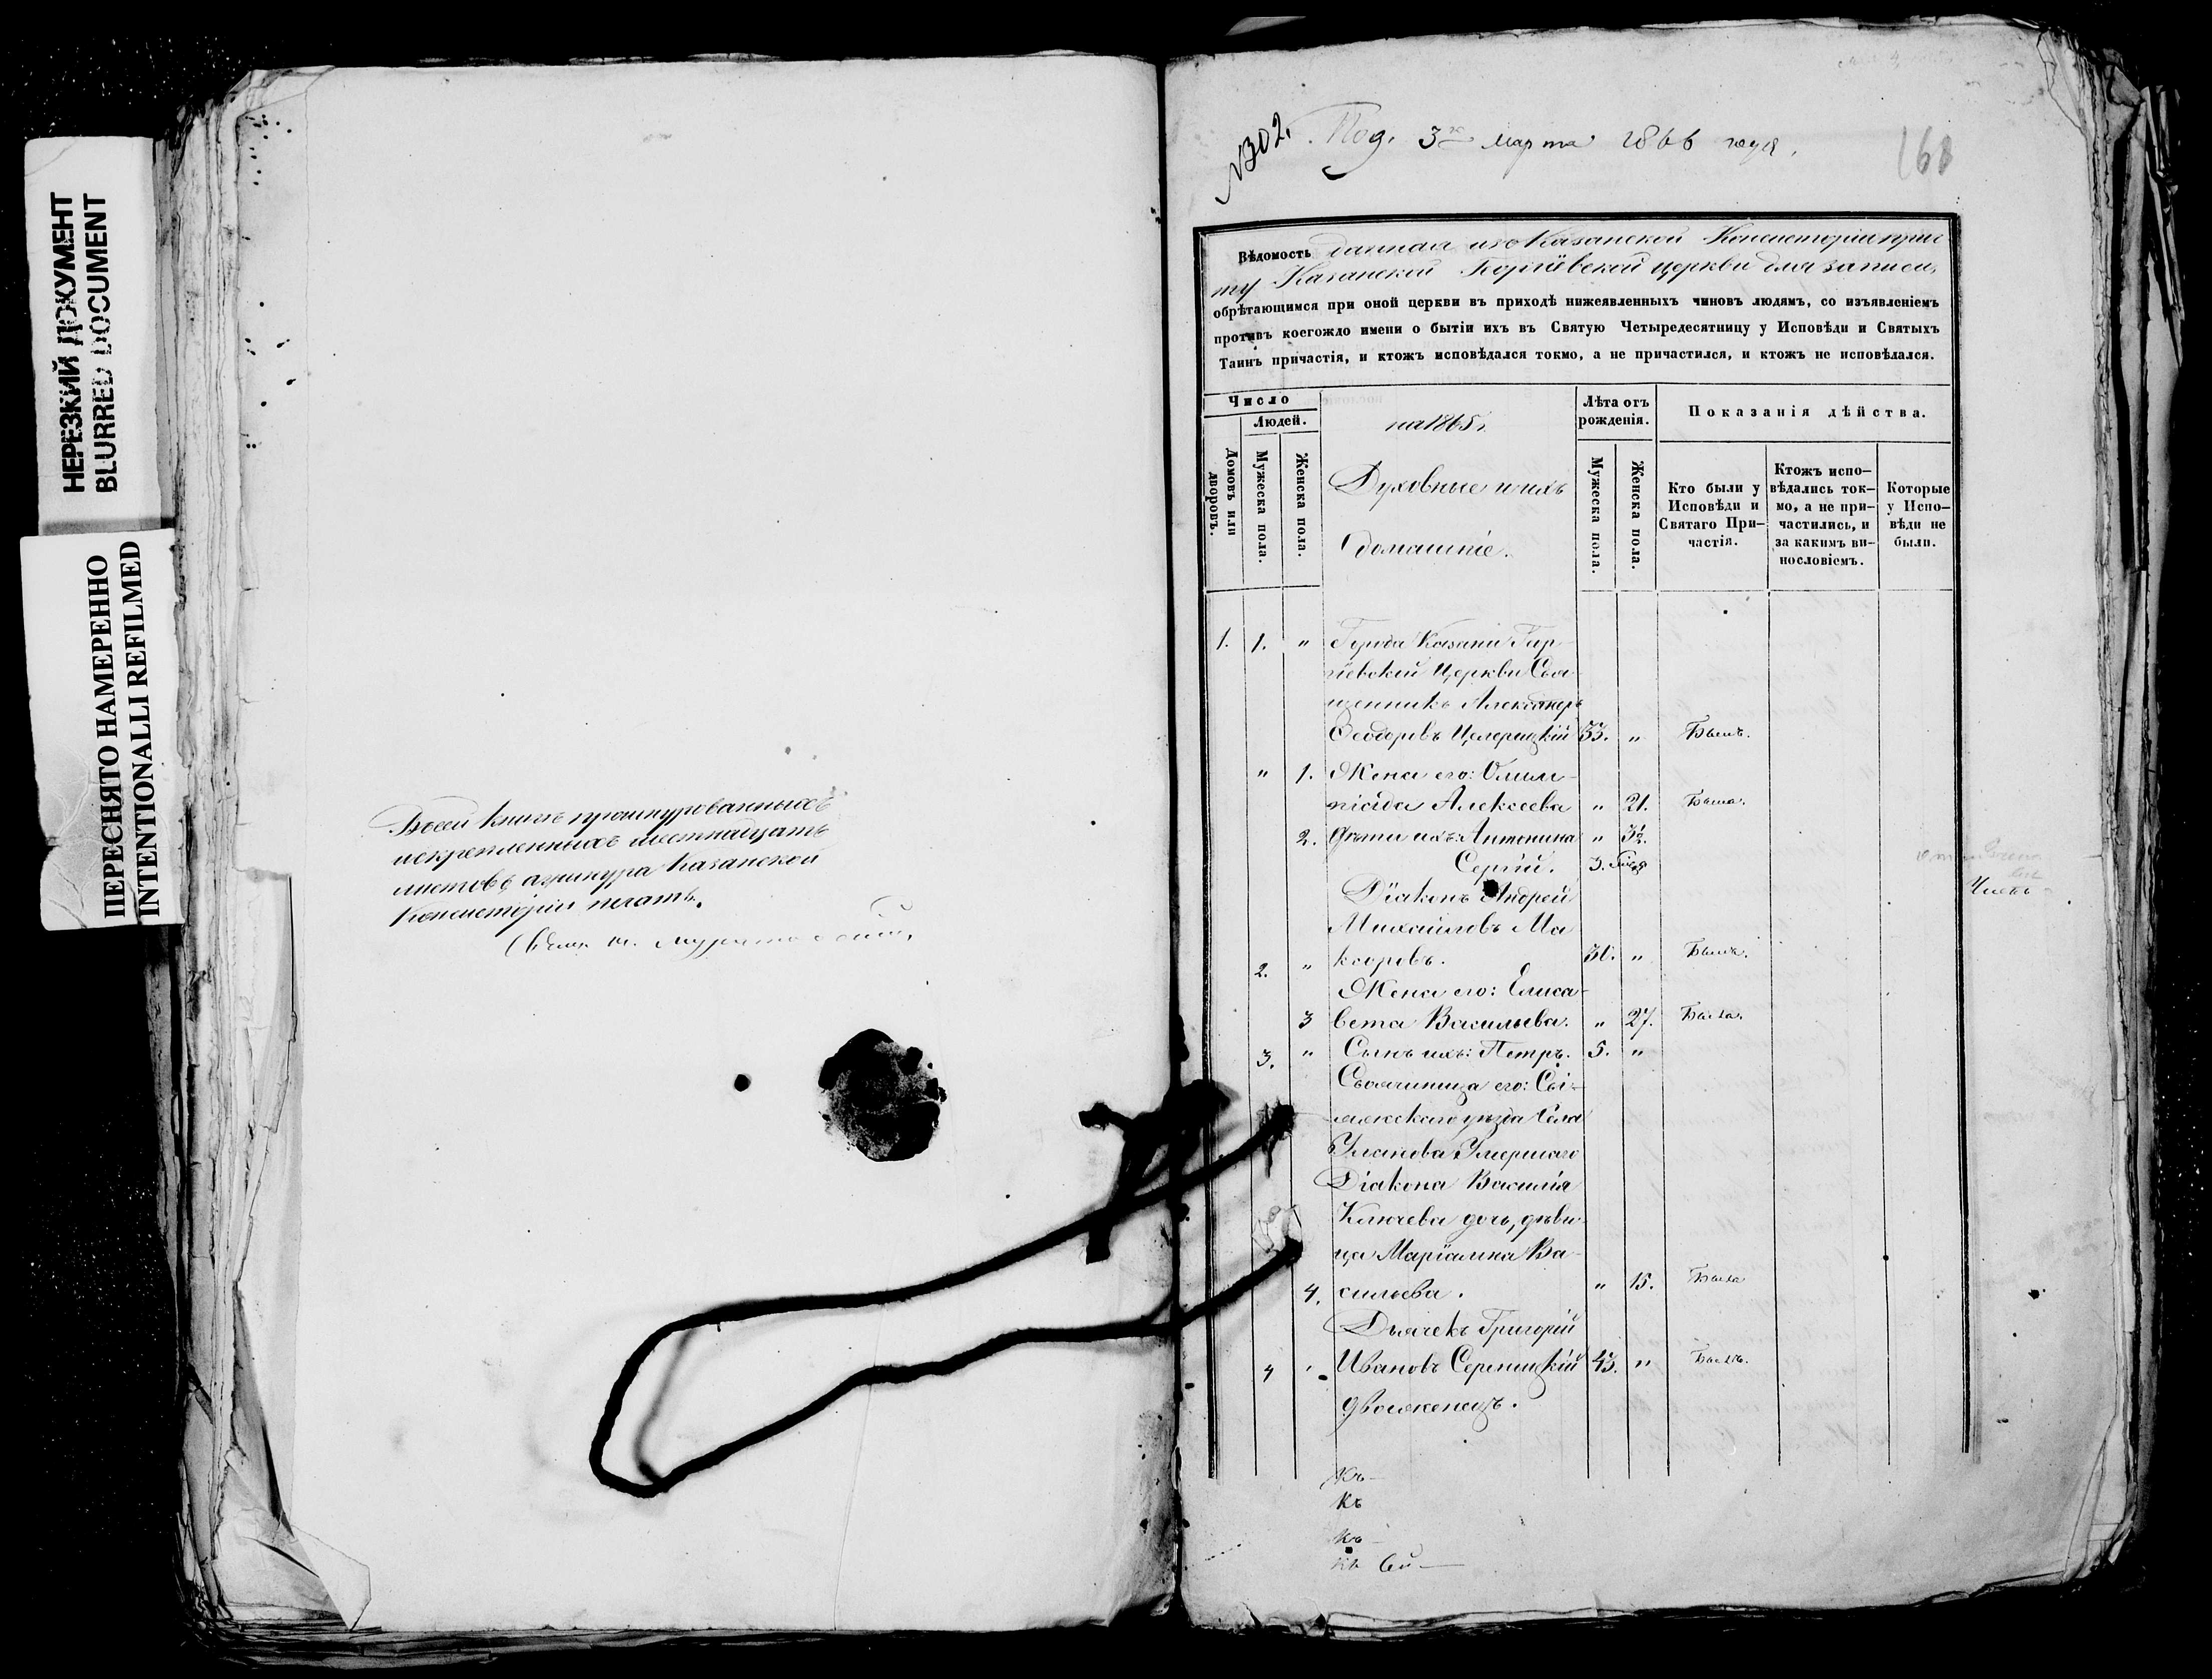 НЕРЕЗКИЙ ДОКУМЕНТ
BLURRED DOCUMENT
ПЕРЕСНЯТО НАМЕРЕННО
INTENTIONALLI REFILMED
Въ сей книгѣ прошнурованныхъ
и скрепленныхъ шестнадцать
листовъ, а у шнура Казанской
Консисторіи печать.
№302. Под. 3го марта 1866 года.
168
Вѣдомость данная изъ Казанской Консисторіи прич
ту Казанской Георгіевской церкви для записи,
обрѣтающимся при оной церкви въ приходѣ нижеявленныхъ чиновъ людямъ, со изъявленіемъ
противъ коегождо имени о бытіи ихъ въ Святую Четыредесятницу у Исповѣди и Святыхъ
Таинъ причастія, и ктожъ исповѣдался токмо, а не причастился, и ктожъ не исповѣдался.
Число
Людей.
Домовъ или дворовъ.
Мужеска пола.
Женска пола.
на 1865 г.
Духовные и ихъ
домашніе.
Лѣта отъ рожденія.
Мужеска пола.
Женска пола.
Показанія дѣйства.
Кто были у Исповѣди и Святаго Причастія.
Ктожъ исповѣдались токмо, а не причастились, и за какимъ винословіемъ.
Которые у Исповѣди не были.
1. 1. " Города Казани Гир
гіевской Церкви Свя
щенникъ Александръ
Ѳеодоровъ 53. " Былъ.
" 1. Жена его: Олим-
піада Алексеева " 21. Была.
2. Дѣти ихъ: Антонина "
Сергій.
Діаконъ Андрей
Михаиловъ Ма
2. " каровъ. 30. " Былъ.
Жена его: Елиса-
3 вета Васильева. " 27. Была.
3. " Сынъ ихъ: Петръ. 5. "
Своячиница его: Сві-
яжскаго уѣзда Села
Уланова Умершаго
Діакона Василія
Ключева дочь, дѣви-
ца Маріамна Ва-
4. сильева. " 15. Была
Дьячекъ Григорій
4 " Ивановъ 43. " Былъ.
двоеженецъ.
Къ
Къ
Къ